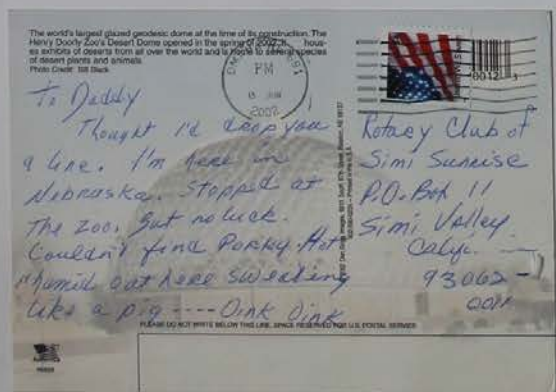 The world's largest glazed geodesic dome at the time of its construction. The
Henry Doorly Zoo's Desert Dome opened in the spring of 2002. It hous-
es exhibits of deserts from all over the world and is home to several species
of desert plants and animals.
Photo Credit: Bill Black
PM
JUN
2002
To Daddy
Thought I'd drop you
a line. I'm here in
Nebraska. Stopped at
The zoo, But no luck.
Couldn't find Porky. Hot
humid out here sweating
like a pig ---- Oink Oink
Rotary Club of
Simi Sunrise
P.O. Box 11
Simi Valley
Calif.
93062-
PLEASE DO NOT WRITE BELOW THIS LINE. SPACE RESERVED FOR U.S. POSTAL SERVICE